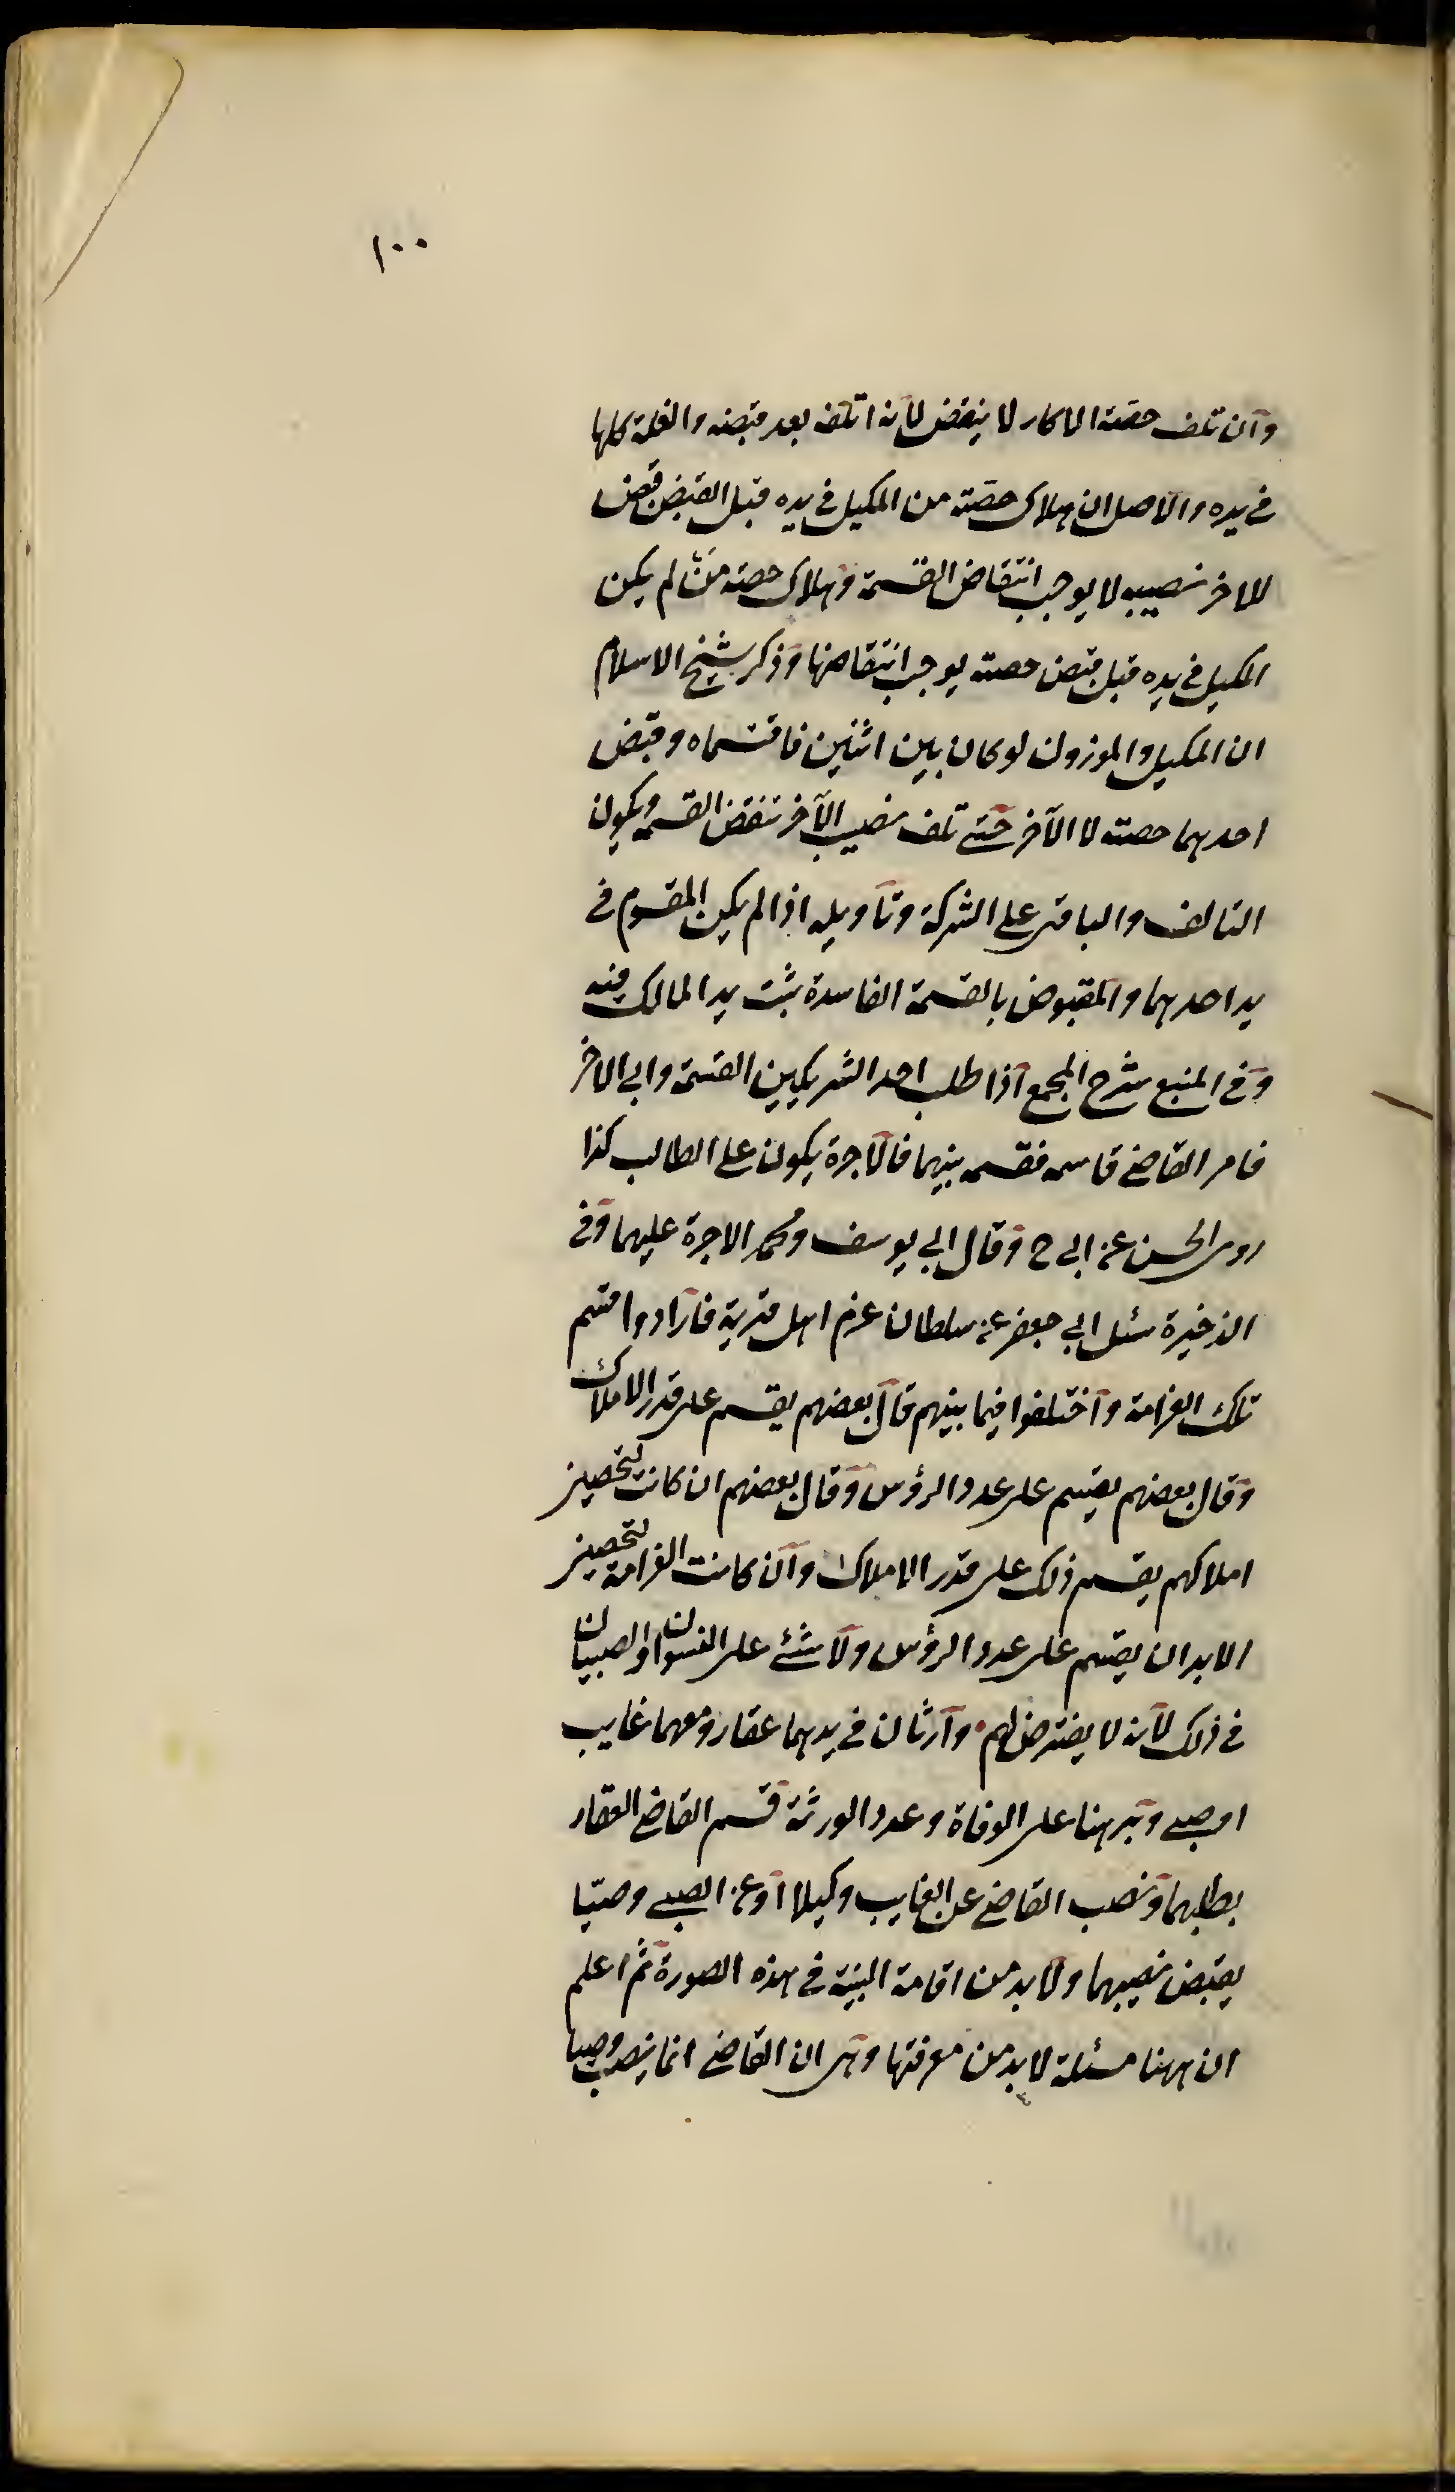 ١٠٠
وان تلف حصة الاكار لا ينقض لانه اتلف بعد قبضه والغلة كلها
فى يده والاصل ان هلاك حصته من المكيل فى يده قبل القبض قبض
للاخر نصيبه لا يوجب انتقاض القسمة وهلاك حصة من لم يكن
المكيل فى يده قبل قبض حصته يوجب انتقاضها وذكر شيخ الاسلام
ان المكيل والموزون لو كان بين اثنين فاقتسماه وقبض
احدهما حصته لا الآخر حتى تلف نصيب الآخر تنقض القسمة ويكون
التالف والباقى على الشركة وتأويله اذا لم يكن المقسوم فى
يد احدهما والمقبوض بالقسمة الفاسدة يثبت يد المالك فيه
وفى المنبع شرح المجمع اذا طلب احد الشريكين القسمة وابى الاخر
فامر القاضى قاسمه فقسمه بينهما فالاجرة يكون على الطالب كذا
روى الحسن عن ابى ح وقال ابى يوسف ومحمد الاجرة عليهما وفى
الذخيرة سئل ابى جعفر عن سلطان غرم اهل قرية فارادوا قسم
تلك الغرامة واختلفوا فيما بينهم قال بعضهم يقسم على قدر الاملاك
وقال بعضهم يقسم على عدد الرؤس وقال بعضهم ان كانت لتحصين
املاكهم يقسم ذلك على قدر الاملاك وان كانت الغرامة لتحصين
الابدان يقسم على عدد الرؤس ولا شئ على النسوان والصبيان
فى ذلك لانه لا يفترض لهم وارثان فى يدهما عقار ومعهما غايب
او صبى وبرهنا على الوفاة وعدد الورثة قسم القاضى العقار
بطلبهما ونصب القاضى عن الغايب وكيلا او عن الصبى وصيّا
يقبض نصيبهما ولا بد من اقامة البينة فى هذه الصورة ثم اعلم
ان ههنا مسئلة لا بد من معرفتها وهى ان القاضى انما ينصب وصيا